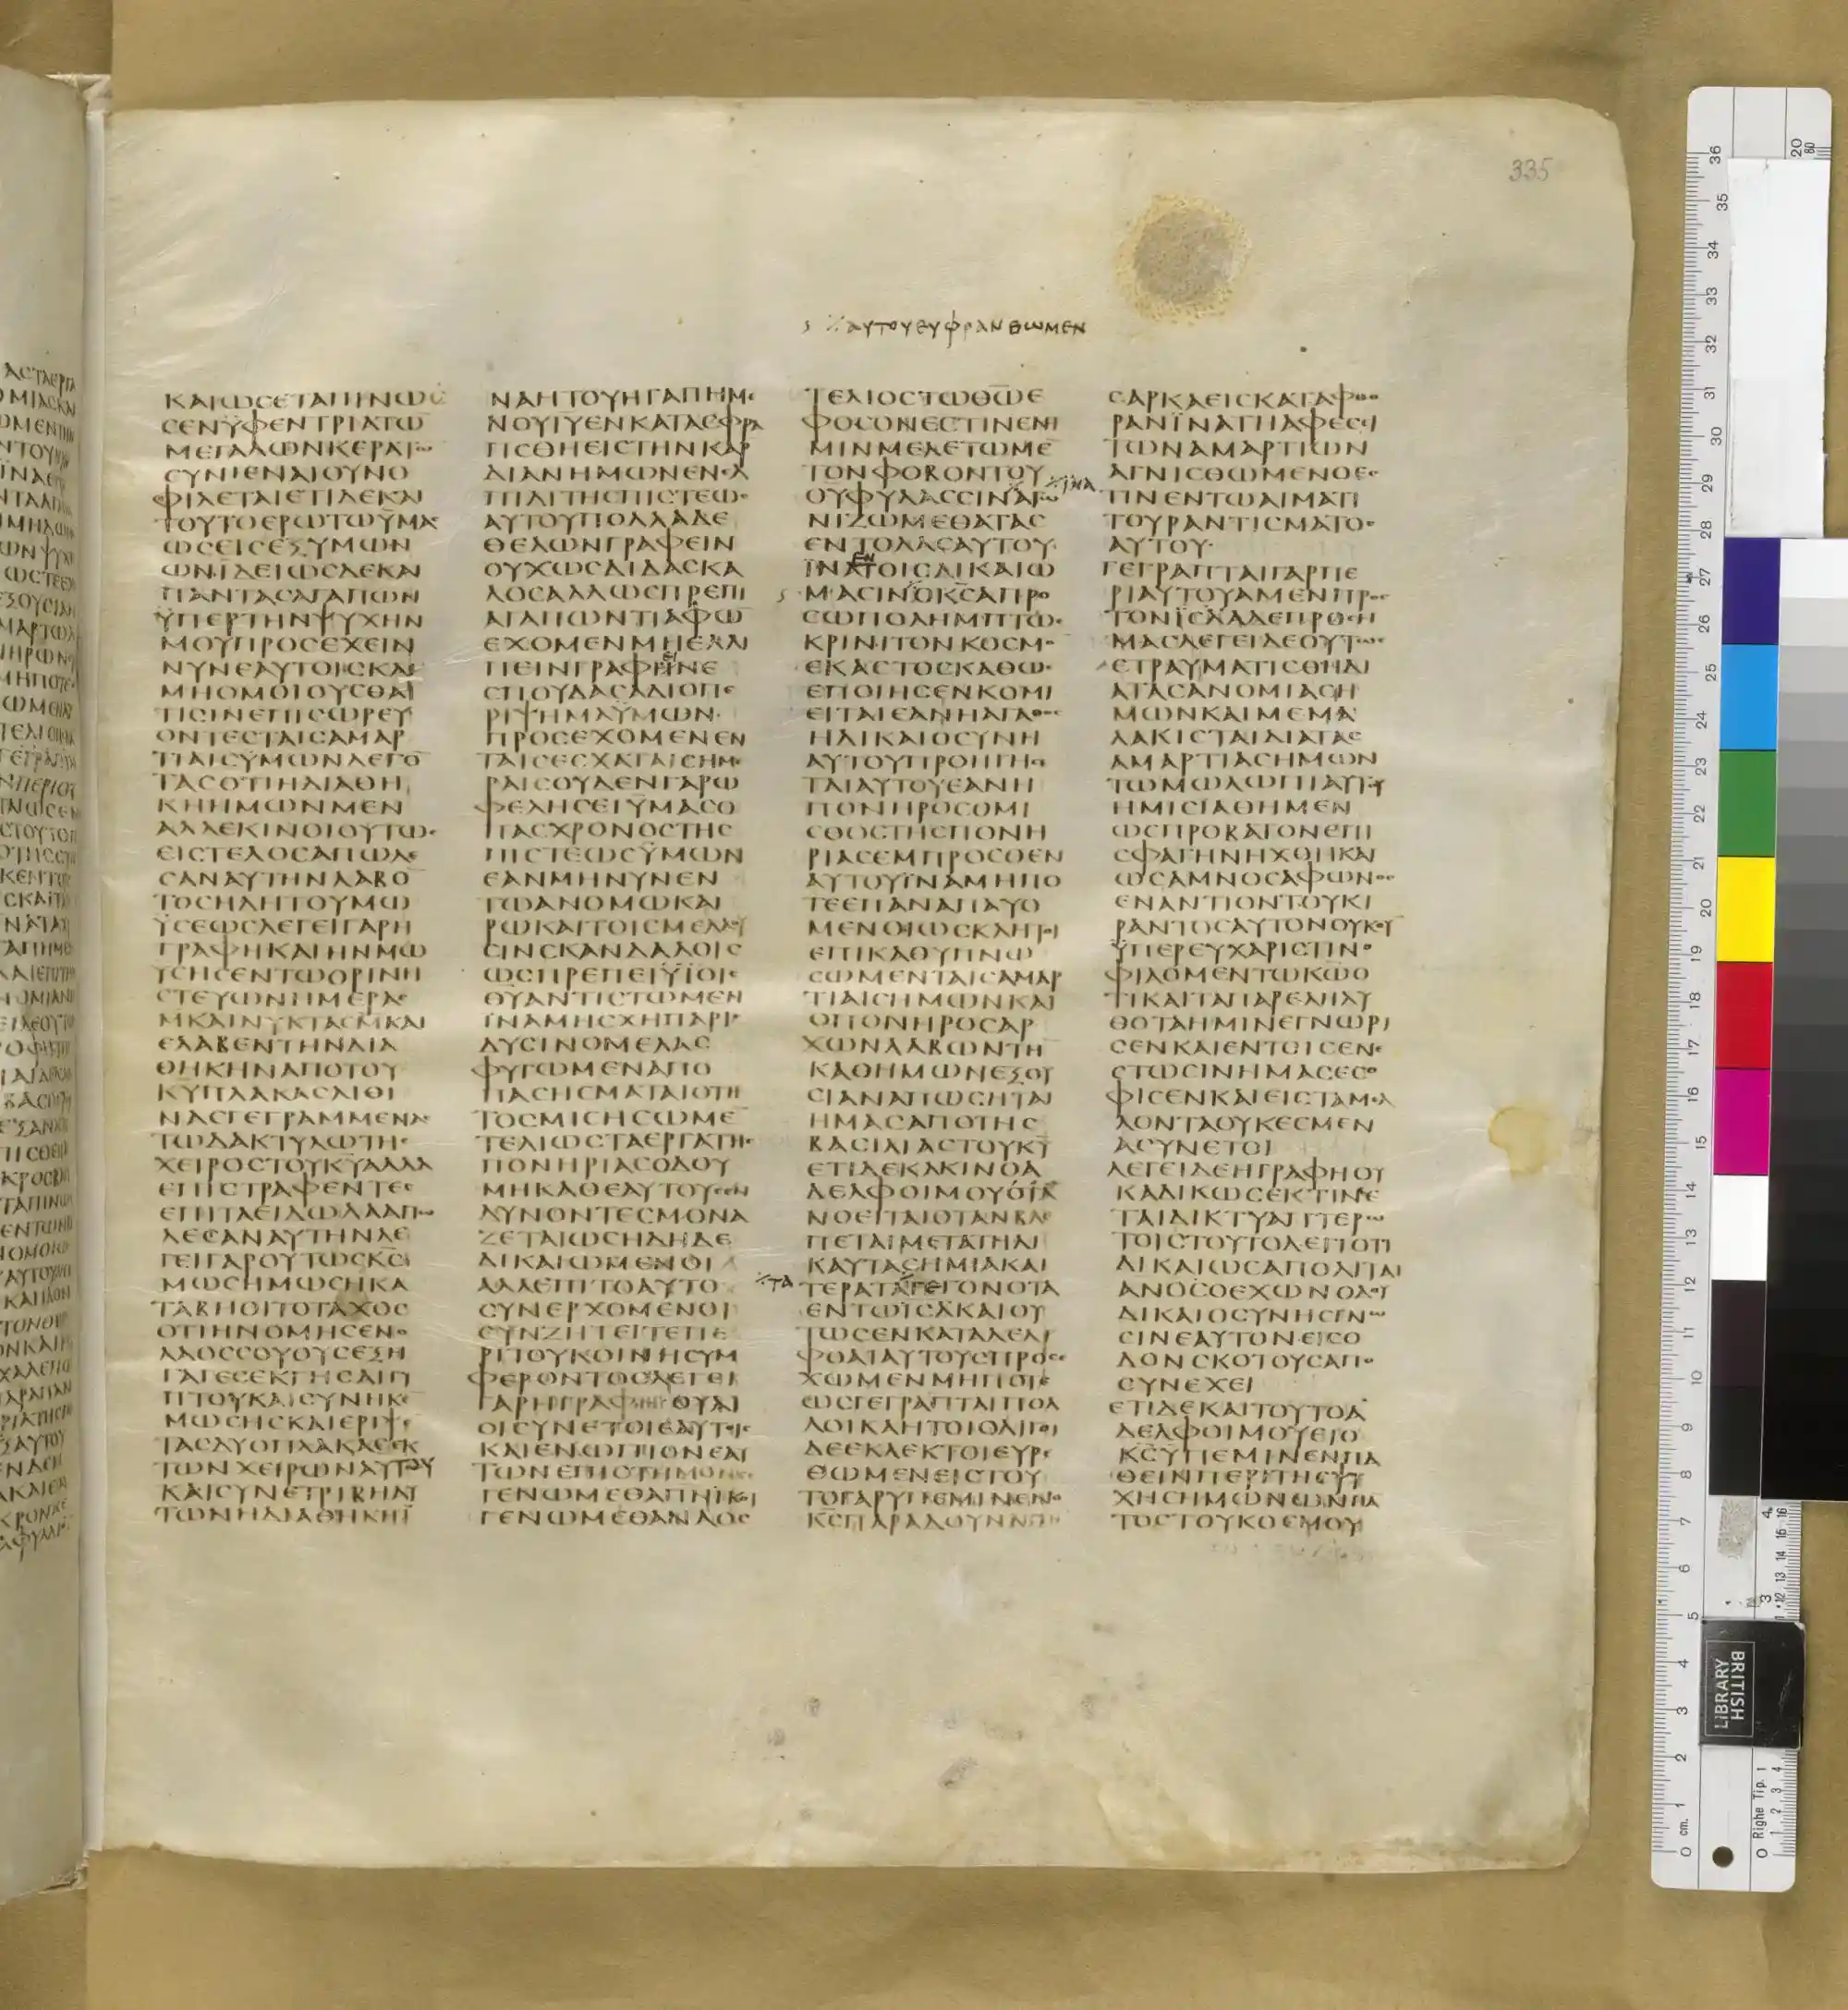 335
αυτου ευφρανθωμεν
ΚΑΙΩϹΕΤΑΠΙΝΩ
ϹΕΝΫΦΕΝΤΡΙΑΤΩ̅
ΜΕΓΑΛΩΝΚΕΡΑΤΩ̅
ϹΥΝΙΕΝΑΙΟΥΝΟ
ΦΙΛΕΤΑΙΕΤΙΔΕΚΑΙ
ΤΟΥΤΟΕΡΩΤΩΫΜΑϹ
ΩϹΕΙϹΕΞΥΜΩΝ
ΩΝΙΔΕΙΩϹΔΕΚΑΙ
ΠΑΝΤΑϹΑΓΑΠΩΝ
ΫΠΕΡΤΗΝΨΥΧΗΝ
ΜΟΥΠΡΟϹΕΧΕΙΝ
ΝΥΝΕΑΥΤΟΙϹΚΑΙ
ΜΗΟΜΟΙΟΥϹΘΑΙ
ΤΙϹΙΝΕΠΙϹΩΡΕΥ
ΟΝΤΕϹΤΑΙϹΑΜΑΡ
ΤΙΑΙϹΥΜΩΝΛΕΓΟ̅
ΤΑϹΟΤΙΗΔΙΑΘΗ
ΚΗΗΜΩΝΜΕΝ
ΑΛΛΕΚΙΝΟΙΟΥΤΩϹ
ΕΙϹΤΕΛΟϹΑΠΩΛΕ
ϹΑΝΑΥΤΗΝΛΑΒΟ̅
ΤΟϹΗΔΗΤΟΥΜΩ
ΫϹΕΩϹΛΕΓΕΙΓΑΡΗ
ΓΡΑΦΗΚΑΙΗΝΜΩ
ΥϹΗϹΕΝΤΩΟΡΙΝΗ
ϹΤΕΥΩΝΗΜΕΡΑϹ
Μ̅ΚΑΙΝΥΚΤΑϹΜ̅ΚΑΙ
ΕΛΑΒΕΝΤΗΝΔΙΑ
ΘΗΚΗΝΑΠΟΤΟΥ
ΚΥ̅ΠΛΑΚΑϹΛΙΘΙ
ΝΑϹΓΕΓΡΑΜΜΕΝΑϹ
ΤΩΔΑΚΤΥΛΩΤΗϹ
ΧΕΙΡΟϹΤΟΥΚΥ̅ΑΛΛΑ
ΕΠΙϹΤΡΑΦΕΝΤΕϹ
ΕΠΙΤΑΕΙΔΩΛΑΑΠΩ
ΛΕϹΑΝΑΥΤΗΝΛΕ
ΓΕΙΓΑΡΟΥΤΩϹΚϹ̅
ΜΩϹΗΜΩϹΗΚΑ
ΤΑΒΗΘΙΤΟΤΑΧΟϹ
ΟΤΙΗΝΟΜΗϹΕΝΟ
ΛΑΟϹϹΟΥΟΥϹΕΞΗ
ΓΑΓΕϹΕΚΓΗϹΑΙΓΥ
ΠΤΟΥΚΑΙϹΥΝΗΚΕ
ΜΩϹΗϹΚΑΙΕΡΙΨΕ
ΤΑϹΔΥΟΠΛΑΚΑϹΕΚ
ΤΩΝΧΕΙΡΩΝΑΥΤΟΥ
ΚΑΙϹΥΝΕΤΡΙΒΗΑΥ
ΤΩΝΗΔΙΑΘΗΚΗΪ
ΝΑΗΤΟΥΗΓΑΠΗΜΕ
ΝΟΥΙΥ̅ΕΝΚΑΤΑϹΦΡΑ
ΓΙϹΘΗΕΙϹΤΗΝΚΑΡ
ΔΙΑΝΗΜΩΝΕΝΕΛ
ΠΙΔΙΤΗϹΠΙϹΤΕΩϹ
ΑΥΤΟΥΠΟΛΛΑΔΕ
ΘΕΛΩΝΓΡΑΦΕΙΝ
ΟΥΧΩϹΔΙΔΑϹΚΑ
ΛΟϹΑΛΛΩϹΠΡΕΠΙ
ΑΓΑΠΩΝΤΙΑΦΩ̅
ΕΧΟΜΕΝΜΗΕΛΛΙ
ΠΕΙΝΓΡΑΦΕΙΝΕ
ϹΠΟΥΔΑϹΑΔΙΟΠΕ
ΡΙΨΗΜΑΫΜΩΝ
ΠΡΟϹΕΧΟΜΕΝΕΝ
ΤΑΙϹΕϹΧΑΤΑΙϹΗΜΕ
ΡΑΙϹΟΥΔΕΝΓΑΡΩ
ΦΕΛΗϹΕΙΫΜΑϹΟ
ΠΑϹΧΡΟΝΟϹΤΗϹ
ΠΙϹΤΕΩϹΫΜΩΝ
ΕΑΝΜΗΝΥΝΕΝ
ΤΩΑΝΟΜΩΚΑΙ
ΡΩΚΑΙΤΟΙϹΜΕΛΛΟΥ
ϹΙΝϹΚΑΝΔΑΛΟΙϹ
ΩϹΠΡΕΠΕΙΫΪΟΙϹ
ΘΥ̅ΑΝΤΙϹΤΩΜΕΝ
ΪΝΑΜΗϹΧΗΠΑΡΙϹ
ΔΥϹΙΝΟΜΕΛΑϹ
ΦΥΓΩΜΕΝΑΠΟ
ΠΑϹΗϹΜΑΤΑΙΟΤΗ
ΤΟϹΜΙϹΗϹΩΜΕ̅
ΤΕΛΙΩϹΤΑΕΡΓΑΤΗϹ
ΠΟΝΗΡΙΑϹΟΔΟΥ
ΜΗΚΑΘΕΑΥΤΟΥϹΕΝ
ΔΥΝΟΝΤΕϹΜΟΝΑ
ΖΕΤΑΙΩϹΗΔΗΔΕ
ΔΙΚΑΙΩΜΕΝΟΙ
ΑΛΛΕΠΙΤΟΑΥΤΟ
ϹΥΝΕΡΧΟΜΕΝΟΙ
ϹΥΝΖΗΤΕΙΤΕΠΕ
ΡΙΤΟΥΚΟΙΝΗϹΥΜ
ΦΕΡΟΝΤΟϹΛΕΓΕΙ
ΓΑΡΗΓΡΑΦΗΟΥΑΙ
ΟΙϹΥΝΕΤΟΙΕΑΥΤΟΙϹ
ΚΑΙΕΝΩΠΙΟΝΕΑΥ
ΤΩΝΕΠΙϹΤΗΜΟΝΕϹ
ΓΕΝΩΜΕΘΑΠΝΙΚΟΙ
ΓΕΝΩΜΕΘΑΝΑΟϹ
ΤΕΛΙΟϹΤΩΘΩ̅Ε
ΦΟϹΟΝΕϹΤΙΝΕΝΗ
ΜΙΝΜΕΛΕΤΩΜΕ̅
ΤΟΝΦΟΒΟΝΤΟΥ
ΟΥΦΥΛΑϹϹΙΝΑΓΩ
ΪΝΑ
ΝΙΖΩΜΕΘΑΤΑϹ
ΕΝΤΟΛΑϹΑΥΤΟΥ
ΕΝ
ΪΝΑΤΟΙϹΔΙΚΑΙΩ
ΜΑϹΙΝΟΚϹ̅ΑΠΡΟ
ϹΩΠΟΛΗΜΠΤΩϹ
ΚΡΙΝΙΤΟΝΚΟϹΜΟ̅
ΕΚΑϹΤΟϹΚΑΘΩϹ
ΕΠΟΙΗϹΕΝΚΟΜΙ
ΕΙΤΑΙΕΑΝΗΑΓΑΘΟϹ
ΗΔΙΚΑΙΟϹΥΝΗ
ΑΥΤΟΥΠΡΟΗΓΗϹΕ
ΤΑΙΑΥΤΟΥΕΑΝΗ
ΠΟΝΗΡΟϹΟΜΙ
ϹΘΟϹΤΗϹΠΟΝΗ
ΡΙΑϹΕΜΠΡΟϹΘΕΝ
ΑΥΤΟΥΪΝΑΜΗΠΟ
ΤΕΕΠΑΝΑΠΑΥΟ
ΜΕΝΟΙΩϹΚΛΗΤΟΙ
ΕΠΙΚΑΘΥΠΝΩ
ϹΩΜΕΝΤΑΙϹΑΜΑΡ
ΤΙΑΙϹΗΜΩΝΚΑΙ
ΟΠΟΝΗΡΟϹΑΡ
ΧΩΝΛΑΒΩΝΤΗ̅
ΚΑΘΗΜΩΝΕΞΟΥ
ϹΙΑΝΑΠΩϹΗΤΑΙ
ΗΜΑϹΑΠΟΤΗϹ
ΒΑϹΙΛΙΑϹΤΟΥΚΥ̅
ΕΤΙΔΕΚΑΚΙΝΟΑ
ΔΕΛΦΟΙΜΟΥ
ΝΟΕΙΤΑΙΟΤΑΝΒΛΕ
ΠΕΤΑΙΜΕΤΑΤΗΛΙ
ΚΑΥΤΑϹΗΜΙΑΚΑΙ
ΤΑ
ΤΕΡΑΤΑΓΕΓΟΝΟΤΑ
ΕΝΤΩΙϹΛΚΑΙΟΥ
ΤΩϹΕΝΚΑΤΑΛΕΛΙ
ΦΘΑΙΑΥΤΟΥϹΠΡΟϹΕ
ΧΩΜΕΝΜΗΠΟΤΕ
ΩϹΓΕΓΡΑΠΤΑΙΠΟΛ
ΛΟΙΚΛΗΤΟΙΟΛΙΓΟΙ
ΔΕΕΚΛΕΚΤΟΙΕΥΡΕ
ΘΩΜΕΝΕΙϹΤΟΥ
ΤΟΓΑΡΥΠΕΜΙΝΕΝΟ
ΚϹ̅ΠΑΡΑΔΟΥΝΑΙΤΗ̅
ϹΑΡΚΑΕΙϹΚΑΤΑΦΘΟ
ΡΑΝΪΝΑΤΗΑΦΕϹΙ
ΤΩΝΑΜΑΡΤΙΩΝ
ΑΓΝΙϹΘΩΜΕΝΟΕϹ
ΤΙΝΕΝΤΩΑΙΜΑΤΙ
ΤΟΥΡΑΝΤΙϹΜΑΤΟϹ
ΑΥΤΟΥ·
ΓΕΓΡΑΠΤΑΙΓΑΡΠΕ
ΡΙΑΥΤΟΥΑΜΕΝΠΡΟϹ
ΤΟΝΙϹΛΑΔΕΠΡΟϹΗ
ΜΑϹΛΕΓΕΙΔΕΟΥΤΩϹ
ΕΤΡΑΥΜΑΤΙϹΘΗΔΙ
ΑΤΑϹΑΝΟΜΙΑϹΗ
ΜΩΝΚΑΙΜΕΜΑ
ΛΑΚΙϹΤΑΙΔΙΑΤΑϹ
ΑΜΑΡΤΙΑϹΗΜΩΝ
ΤΩΜΩΛΩΠΙΑΥΤΟΥ
ΗΜΙϹΙΑΘΗΜΕΝ
ΩϹΠΡΟΒΑΤΟΝΕΠΙ
ϹΦΑΓΗΝΗΧΘΗΚΑΙ
ΩϹΑΜΝΟϹΑΦΩΝΟϹ
ΕΝΑΝΤΙΟΝΤΟΥΚΙ
ΡΑΝΤΟϹΑΥΤΟΝΟΥΚΟΥ
ΫΠΕΡΕΥΧΑΡΙϹΤΙΝΟ
ΦΙΛΟΜΕΝΤΩΚΩ̅Ο
ΤΙΚΑΙΤΑΠΑΡΕΛΗΛΥ
ΘΟΤΑΗΜΙΝΕΓΝΩΡΙ
ϹΕΝΚΑΙΕΝΤΟΙϹΕΝΕ
ϹΤΩϹΙΝΗΜΑϹΕϹΟ
ΦΙϹΕΝΚΑΙΕΙϹΤΑΜΕΛ
ΛΟΝΤΑΟΥΚΕϹΜΕΝ
ΑϹΥΝΕΤΟΙ
ΛΕΓΕΙΔΕΗΓΡΑΦΗΟΥ
ΚΑΔΙΚΩϹΕΚΤΙΝΕ
ΤΑΙΔΙΚΤΥΑΠΤΕΡΩ
ΤΟΙϹΤΟΥΤΟΛΕΓΙΟΤΙ
ΔΙΚΑΙΩϹΑΠΟΛΙΤΑΙ
ΑΝΟϹ̅ΟΕΧΩΝΟΔΟΥ
ΔΙΚΑΙΟϹΥΝΗϹΓΝΩ
ϹΙΝΕΑΥΤΟΝΕΙϹΟ
ΔΟΝϹΚΟΤΟΥϹΑΠΟ
ϹΥΝΕΧΕΙ
ΕΤΙΔΕΚΑΙΤΟΥΤΟΑ
ΔΕΛΦΟΙΜΟΥΕΙΟ
ΚϹ̅ΫΠΕΜΙΝΕΝΠΑ
ΘΕΙΝΠΕΡΙΤΗϹΨΥ
ΧΗϹΗΜΩΝΩΝΠΑ
ΤΟϹΤΟΥΚΟϹΜΟΥ
BRITISH
LIBRARY